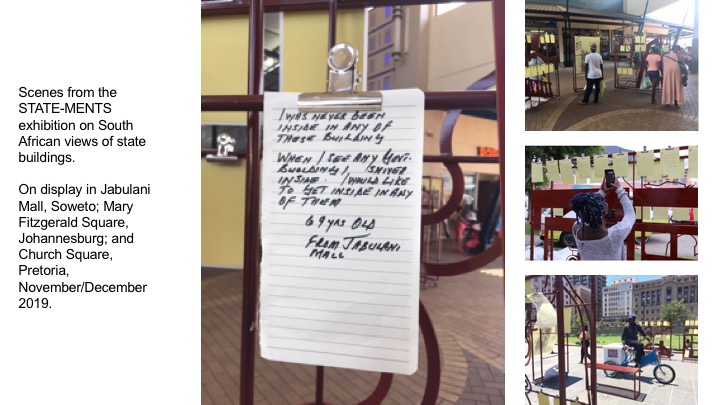 Scenes from the
STATE-MENTS
exhibition on South
African views of state
buildings.
On display in Jabulani
Mall, Soweto; Mary
Fitzgerald Square,
Johannesburg; and
Church Square,
Pretoria,
November/December
2019.
I WAS NEVER BEEN
INSIDE IN ANY OF
THESE BUILDING
WHEN I SEE ANY GOVT.
BUILDING I, SHIVER
INSIDE. I WOULD LIKE
TO GET INSIDE IN ANY
OF THEM
69 YRS OLD
FROM JABULANI
MALL